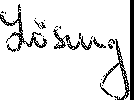 Lösung